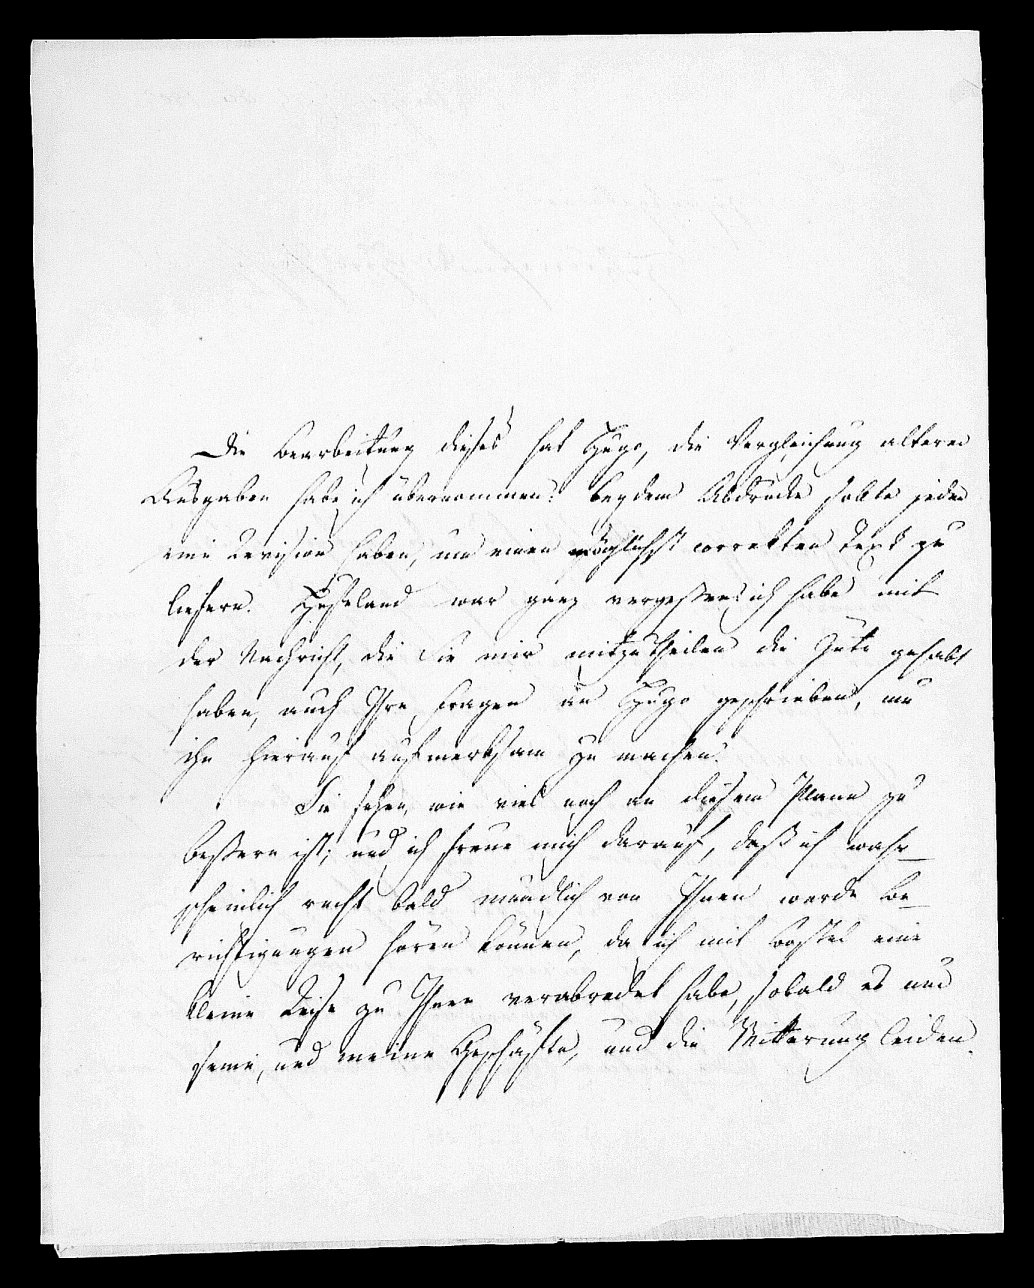 Die Bearbeitung dieses hat Hugo, die Vergleichung älterer
Ausgaben habe ich übernommen: bey dem Abdrucke sollte jeder
eine Revision haben, um einen möglichst correkten Text zu
liefern. Hufeland war ganz vergessen; ich habe mit
der Nachricht, die Sie mir mitzutheilen die Güte gehabt
haben, auch Ihre Fragen an Hugo geschrieben, um
ihn hierauf aufmerksam zu machen.
Sie sehen, wie viel noch an diesem Plane zu
bessern ist; und ich freue mich darauf, daß ich wahr-
scheinlich recht bald mündlich von Ihnen werde Be-
richtigungen hören können, da ich mit Bostel eine
kleine Reise zu Ihnen verabredet habe, sobald es nur
seine, und meine Geschäfte, und die Witterung leiden.